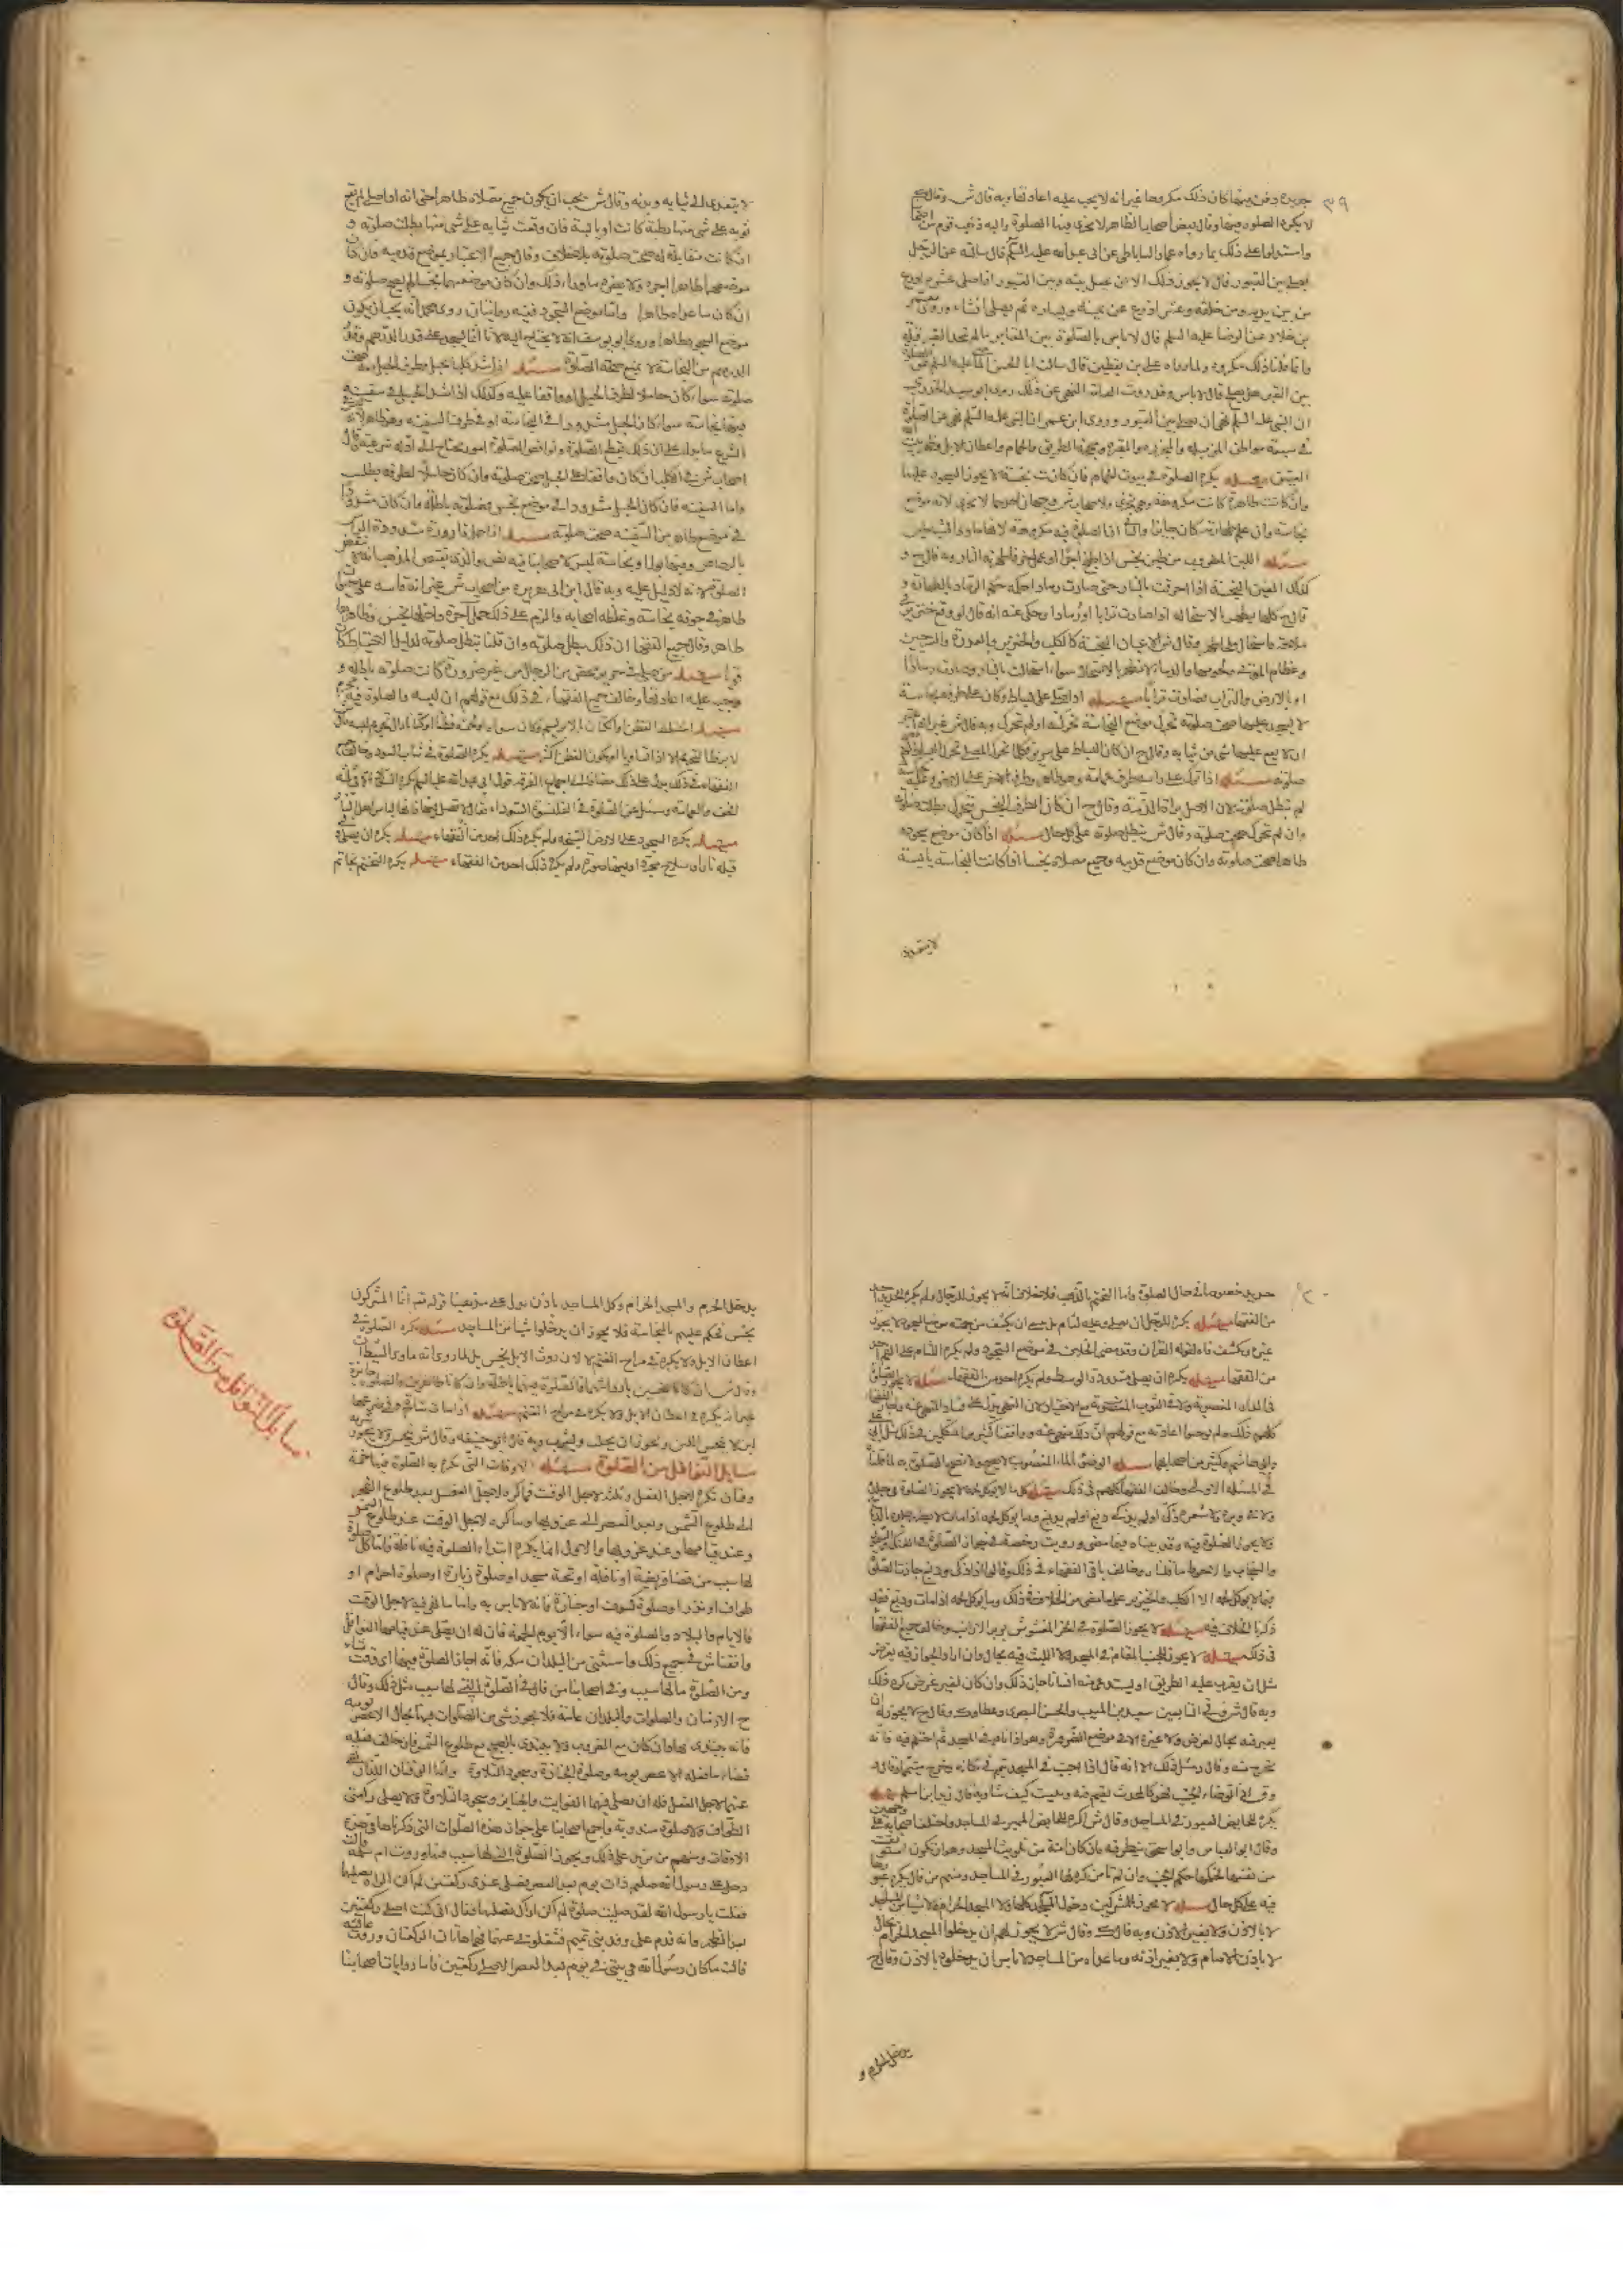 ٣٩
جديدة دفن فيها كان ذلك مكروها غير انه لا يجب عليه اعادتها وبه قال ش وقال
لا يكره الصلوة فيها وقال بعض اصحابنا الظاهر لا يجزى فيها الصلوة واليه ذهب قوم من
واستدلوا على ذلك بما رواه عمار الساباطى عن ابى عبد الله عليه السلم قال سالته عن الرجل
يصلى بين القبور قال لا يجوز ذلك الا ان يجعل بينه وبين القبور اذا صلى عشرة اذرع
من بين يديه ومن خلفه وعشر اذرع عن يمينه ويساره ثم يصلى ان شاء وروى معمر
بن خلاد عن الرضا عليه السلم قال لا باس بالصلوة بين المقابر ما لم يتخذ القبر قبلة
وانما قلنا ذلك مكروه لما رواه على بن يقطين قال سالت ابا الحسن الماضى عليه السلم عن الصلوة
بين القبور هل يصلح قال لا باس وقد روت العامة النهى عن ذلك روى ابو سعيد الخدرى
ان النبى عليه السلم نهى ان يصلى بين القبور وروى ابن عمر ان النبى عليه السلم نهى عن الصلوة
فى سبعة مواطن المزبلة والمجزرة والمقبرة ومحجة الطريق والحمام واعطان الابل وظهر بيت الله
العتيق مسئله يكره الصلوة فى بيوت الحمام فان كانت نجسة لا يجوز السجود عليها
وان كانت طاهرة كانت مكروهة وهى تجزى ولاصحاب ش وجهان احدهما لا يجزى لانه موضع
نجاسة وان علم طهارته كان جايزا والثانى ان الصلوة فيه مكروهة لانها ماوى الشياطين
مسئله اللبن المضروب من طين نجس اذا طبخ اجرا او عمل خزفا طهرته النار وبه قال ح و
كذلك العين النجسة اذا احرقت بالنار حتى صارت رمادا حكم حكم الرماد بالطهارة و
قال ح كلها يطهر بالاستحالة اذا صارت ترابا او رمادا وحكى عنه انه قال لو وقع خنزير فى
ملاحة فاستحال ملحا طهر وقال ش الاعيان النجسة كالكلب والخنزير والعذرة والسرجين
وعظام الموتى ولحومها والدماء لا تطهر بالاستحالة سواء استحالت بالنار وصارت رمادا
او بالارض والتراب فصارت ترابا مسئله اذا صلى على بساط وكان على طرفه نجاسة
لا يسجد عليها صحت صلوته تحرك موضع النجاسة بحركته او لم تتحرك وبه قال ش غير انه اعتبر
ان لا يقع عليها شى من ثيابه وقال ح ان كان البساط على سرير فكلما تحرك المصلى تحرك البساط لم يصح
صلوته مسئله اذا ترك على راسه طرف عمامة وهو طاهر وطرفه الاخر على الارض وعليه نجاسة
لم تبطل صلوته لان الاصل براءة الذمة وقال ح ان كان الطرف النجس يتحرك بحركته بطلت صلوته
وان لم تتحرك صحت صلوته وقال ش يبطل صلوته على كل حال مسئله اذا كان موضع سجوده
طاهرا صحت صلوته وان كان موضع قدميه وجميع مصلاه نجسا اذا كانت النجاسة يابسة
لا يتعدى
لا يتعدى الى ثيابه وبدنه وقال ش يجب ان يكون جميع مصلاه طاهرا حتى انه اذا صلى لم يقع
ثوبه على شى منها رطبة كانت او يابسة فان وقعت ثيابه على شى منها بطلت صلوته و
ان كانت مقابلة له صحت صلوته بلا خلاف وقال ح الاعتبار بموضع قدميه فان كان
موضعهما طاهرا اجزاه ولا يضره ما وراء ذلك وان كان موضعهما نجسا لم يصح صلوته و
ان كان ما عداه طاهرا واما موضع السجود ففيه روايتان روى محمد انه يجب ان يكون
موضع السجود طاهرا وروى ابو يوسف انه لا يحتاج اليه لانه انما يسجد على قدر الدرهم وقدر
الدرهم من النجاسة لا يمنع صحة الصلوة مسئله اذا شد كلبا بحبل وطرف الحبل معه صحت
صلوته سواء كان حاملا لطرف الحبل او واقفا عليه وكذلك اذا شد الحبل فى سفينة
فيها نجاسة سواء كان الحبل مشدودا فى النجاسة او فى طرف السفينة وهو طاهر لان
الشرع ما دل على ان ذلك يقطع الصلوة ونواقض الصلوة امور تحتاج الى ادلة شرعية وقال
اصحاب ش فى الكلب ان كان واقفا على الحبل صحت صلوته وان كان حاملا لطرفه بطلت
واما السفينة فان كان الحبل مشدودا فى موضع نجس فصلوته باطلة وان كان مشدودا
فى موضع طاهر من السفينة صحت صلوته مسئله اذا حمل قارورة مشدودة الراس
بالرصاص وفيها بول او نجاسة ليس لاصحابنا فيه نص والذى يقتضى المذهب انه لا ينقض
الصلوة لانه لا دليل عليه وبه قال ابن ابى هريرة من اصحاب ش غير انه قاسه على حيوان
طاهر فى جوفه نجاسة وغلطه اصحابه والزم على ذلك حمل آجرة داخلها نجس وظاهرها
طاهر وقال جميع الفقهاء ان ذلك يبطل صلوته وان قلنا تبطل صلوته لدليل الاحتياط كان
قويا مسئله من صلى فى حرير محض من الرجال من غير ضرورة كانت صلوته باطلة و
وجب عليه اعادتها وخالف جميع الفقهاء فى ذلك مع قولهم ان لبسه والصلوة فيه محرم
مسئله اختلط القطن والكتان بالابريسم وكان سداه او لحمته قطنا او كتانا زال تحريم لبسه وقال
ش لا يزول التحريم الا اذا تساويا او يكون القطن اكثر مسئله يكره الصلوة فى ثياب السود وخالف جميع
الفقهاء فى ذلك يدل على ذلك مضافا الى اجماع الفرقة قول ابى عبد الله عليه السلم يكره السواد الا فى ثلثة
الخف والعمامة وسئل عن الصلوة فى القلنسوة السوداء فقال لا تصل فيها فانها لباس اهل النار
مسئله يكره السجود على الارض السبخة ولم يكره ذلك احد من الفقهاء مسئله يكره ان يصلى وفى
قبلته نار او سلاح مجردا وفيها صورة ولم يكره ذلك احد من الفقهاء مسئله يكره التختم بخاتم
حديد خصوصا فى حال الصلوة واما التختم بالذهب فلا خلاف انه لا يجوز للرجال ولم يكره الحديد احد
من الفقهاء مسئله يكره للرجل ان يصلى وعليه لثام بل يجب ان يكشف من جبهته موضع السجود لا يجوز
غيره ويكشف فاه لقراءة القران وقد مضى الخلاف فى موضع السجود ولم يكره اللثام على الفم احد
من الفقهاء مسئله يكره ان يصلى مشدود الوسط ولم يكره احد من الفقهاء مسئله لا يجوز الصلوة
فى الدار المغصوبة ولا فى الثوب المغصوبة مع الاختيار لان النهى يدل على فساد المنهى عنه واجاز الفقهاء
كلهم ذلك ولم يوجبوا اعادته مع قولهم ان ذلك منهى عنه ووافقنا كثير من المتكلمين فى ذلك مثل ابى على
وابى هاشم وكثير من اصحابهما مسئله الوضوء بالماء المغصوب لا يصح ولا تصح الصلوة به لما قلناه
فى المسئلة الاولى وخالف الفقهاء كلهم فى ذلك مسئله كل ما لا يؤكل لحمه لا يجوز الصلوة فى جلده
ولا فى وبره ولا شعره ذكى او لم يذك دبغ او لم يدبغ وما يؤكل لحمه اذا مات لا يطهر جلده بالدباغ
ولا يجوز الصلوة فيه وقد بيناه فيما مضى ورويت رخصة فى جواز الصلوة فى الفنك والسمور
والسنجاب والاحوط ما قلناه وخالف باقى الفقهاء فى ذلك وقالوا اذا ذكى ودبغ جازت الصلوة
فيما لا يؤكل لحمه الا الكلب والخنزير على ما مضى من الخلاف فى ذلك وما يؤكل لحمه اذا مات ودبغ فقد
ذكرنا الخلاف فيه مسئله لا يجوز الصلوة فى الخز المغشوش بوبر الارانب وخالف جميع الفقهاء
فى ذلك مسئله لا يجوز للجنب المقام فى المسجد ولا اللبث فيه بحال وان اراد الجواز فيه لغرض
مثل ان يقرب عليه الطريق او ليستدعى منه انسانا جاز ذلك وان كان لغير غرض كره ذلك
وبه قال ش وفى التابعين سعيد بن المسيب والحسن البصرى وعطا وك وقال ح لا يجوز له ان
يعبر فيه بحال لغرض ولا غيره الا فى موضع الضرورة وهو اذا نام فى المسجد ثم احتلم فيه فانه
يخرج منه وقال ر مثل ذلك الا انه قال اذا اجنب فى المسجد تيمم فى مكانه وخرج متيمما وقال
وق اذا توضا الجنب فهو كالمحدث يقيم فيه ويلبث كيف شاء وبه قال زيد بن اسلم مسئله
يكره للحايض العبور فى المساجد وقال ش اكره للحايض الممر فى المساجد واختلف اصحابه على وجهين
وقال ابو العباس وابو اسحق ينظر فيه فان كان امنة من تلويث المسجد وهو ان تكون استوثقت
من نفسها فحكمها حكم الجنب وان لم تامن كره لها العبور فى المساجد ومنهم من قال يكره عبورها
فيه على كل حال مسئله لا يجوز للمشركين دخول المساجد كلها لا المسجد الحرام ولا شيئا من المساجد
لا بالاذن ولا بغير الاذن وبه قال ك وقال ش لا يجوز لهم ان يدخلوا المسجد الحرام بحال
لا باذن الامام ولا بغير اذنه وما عداه من المساجد لا باس ان يدخلوه بالاذن وقال ح
يدخل الحرم و
يدخل الحرم والمسجد الحرام وكل المساجد باذن يدل على مذهبنا قوله تعم انما المشركون
نجس فحكم عليهم بالنجاسة فلا يجوز ان يدخلوا شيئا من المساجد مسئله يكره الصلوة فى
اعطان الابل ولا يكره فى مراح الغنم لا لان روث الابل نجس بل لما روى انه ماوى الشيطان
وقال ش ان كانا نجسين بارواثهما فالصلوة فيهما باطلة وان كانا طاهرين والصلوة جائزة
غير انه يكره فى اعطان الابل ولا يكره فى مراح الغنم مسئله اذا ماتت شاة وفى ضرعها
لبن لا ينجس اللبن ويجوز ان يحلب ويشرب وبه قال ابو حنيفه وقال ش نجس ولا يجوز شربه
مسايل النوافل من الصلوة مسئله الاوقات التى تكره فيها الصلوة خمسة
وقتان تكره لاجل الفعل وثلثة لاجل الوقت فما كره لاجل الفعل بعد طلوع الفجر
الى طلوع الشمس وبعد العصر الى غروبها وما كره لاجل الوقت عند طلوع الشمس
وعند قيامها وعند غروبها والاول انما يكره ابتداء الصلوة فيه نافلة فاما كل صلوة
لها سبب من قضاء فريضة او نافلة او تحية مسجد او صلوة زيارة او صلوة احرام او
طواف او نذر او صلوة كسوف او جنازة فانه لا باس به واما ما نهى فيه لاجل الوقت
فالايام والبلاد والصلوة فيه سواء الا يوم الجمعة فان له ان يصلى عند قيامها النوافل
ووافقنا ش فى جميع ذلك واستثنى من البلدان مكة فانه اجاز الصلوة فيها اى وقت شاء
ومن الصلوة ما لها سبب وفى اصحابنا من قال فى الصلوة التى لها سبب مثل ذلك وقال
ح الازمان والصلوات والبلدان عامة فلا يجوز شى من الصلوات فيها بحال الا عصر يومه
فانه يبتدى بها وان كان مع الغروب ولا يبتدى بالصبح مع طلوع الشمس فان خالف فعليه
قضاء ما فعله الا عصر يومه وصلوة الجنازة وسجود التلاوة واما الوقتان اللذان نهى
عنهما لاجل الفعل فله ان يصلى فيهما الفوايت والجنايز وسجود التلاوة ولا يصلى ركعتى
الطواف ولا صلوة مندوبة واجمع اصحابنا على جواز هذه الصلوات التى ذكرناها فى هذه
الاوقات ومنهم من زيد على ذلك ويجوز الصلوة التى لها سبب فيها وروت ام سلمة قالت
دخل على رسول الله صلعم ذات يوم بعد العصر فصلى عندى ركعتين لم اكن اراه يصليهما
فقلت يا رسول الله لقد صليت صلوة لم اكن اراك تصليها فقال انى كنت اصلى ركعتين
بعد الظهر وانه قدم على وفد بنى تميم فشغلونى عنهما فهما هاتان الركعتان وروت عايشة
قالت ما كان رسول الله فى بيتى فى يوم بعد العصر الا صلى ركعتين فاما روايات اصحابنا
مسايل النوافل من الصلوة